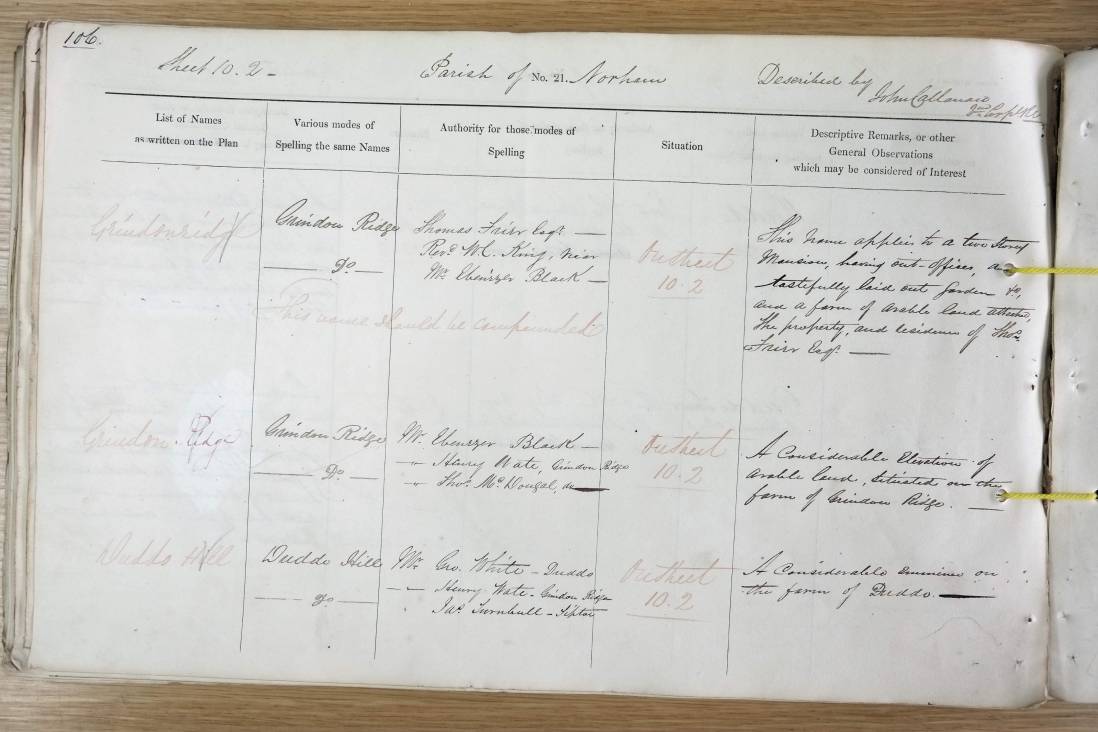 106.
Sheet 10.2 -
Parish of No. 21. Norham
Described by
John Callanan
List of Names
as written on the Plan
Various modes of
Spelling the same Names
Authority for those modes of
Spelling
Situation
Descriptive Remarks, or other
General Observations
which may be considered of Interest
Grindonridge
Grindon Ridge
Do.
Thomas Friar Esqr. —
Revd. W.C. King, Vicar
Mr. Ebenezer Black —
On Sheet
10.2
This name applies to a two Story
Mansion, having out-offices, a
tastefully laid out Garden &c,
and a farm of arable land attached,
the property, and residence of Thos.
Friar Esqr. —
This name should be compounded
Grindon Ridge
Grindon Ridge
Do.
Mr. Ebenezer Black —
-"- Henry Wate, Grindon Ridge
-"- Thos. McDougal, do —
On Sheet
10.2
A Considerable Elevation of
arable land, situated on the
farm of Grindon Ridge. —
Duddo Hill
Duddo Hill
Do
Mr. Geo. White - Duddo
-"- Henry Wate - Grindon Ridge
" Jas. Turnbull - Tiptoe
On Sheet
10.2
A Considerable eminence on
the farm of Duddo. —